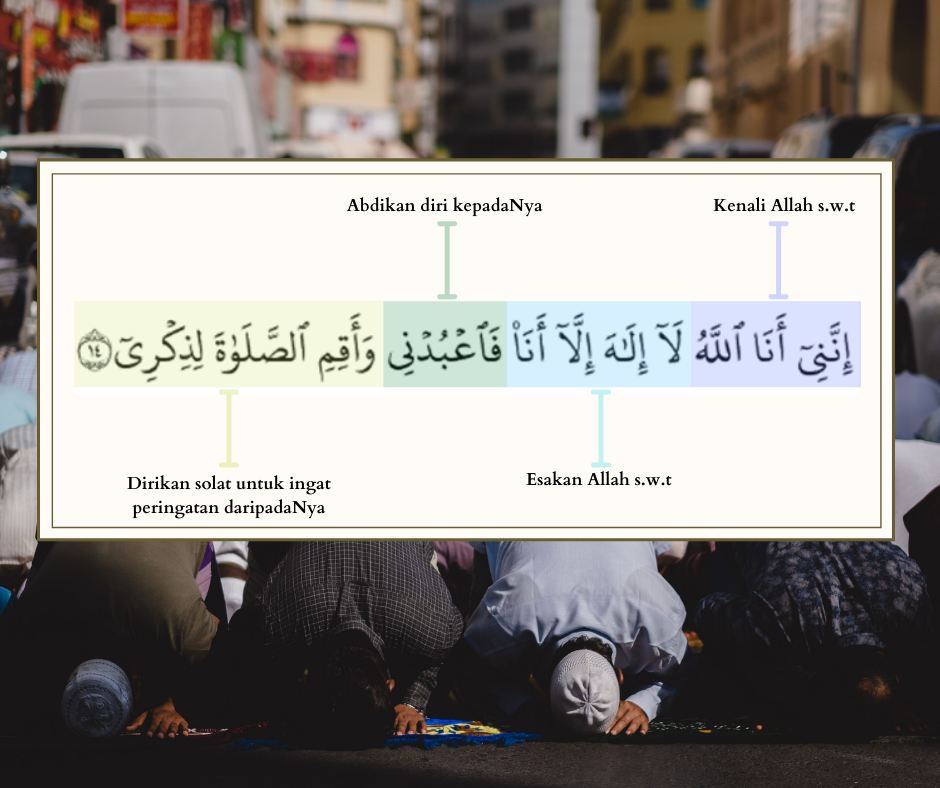 Abdikan diri kepadaNya
Kenali Allah s.w.t
إِنَّنِىٓ أَنَا ٱللَّهُ لَآ إِلَـٰهَ إِلَّآ أَنَا۠ فَٱعْبُدْنِى وَأَقِمِ ٱلصَّلَوٰةَ لِذِكْرِىٓ ١٤
Dirikan solat untuk ingat
peringatan daripadaNya
Esakan Allah s.w.t